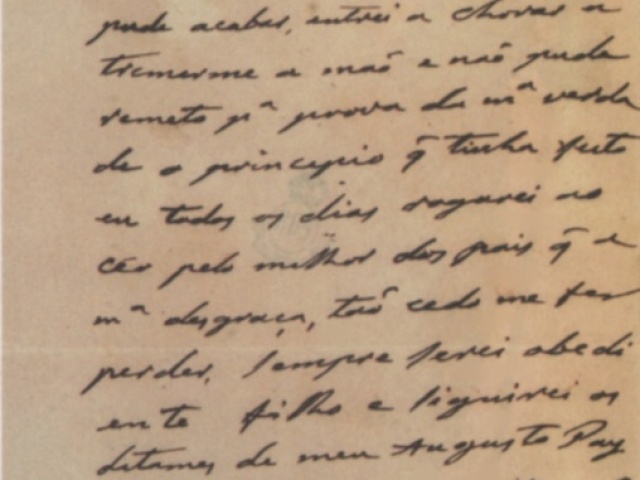 pude acabar, entrei a chorar a
tremerme a maõ e naõ pude
remeto pª prova da mª verda
de o principio q̃ tinha feito
eu todos os dias rogarei ao
céo pelo milhor dos pais q̃ a
mª desgraça, taõ cedo me fez
perder, sempre serei obedi
ente filho e siguirei os
ditames de meu Augusto Pay